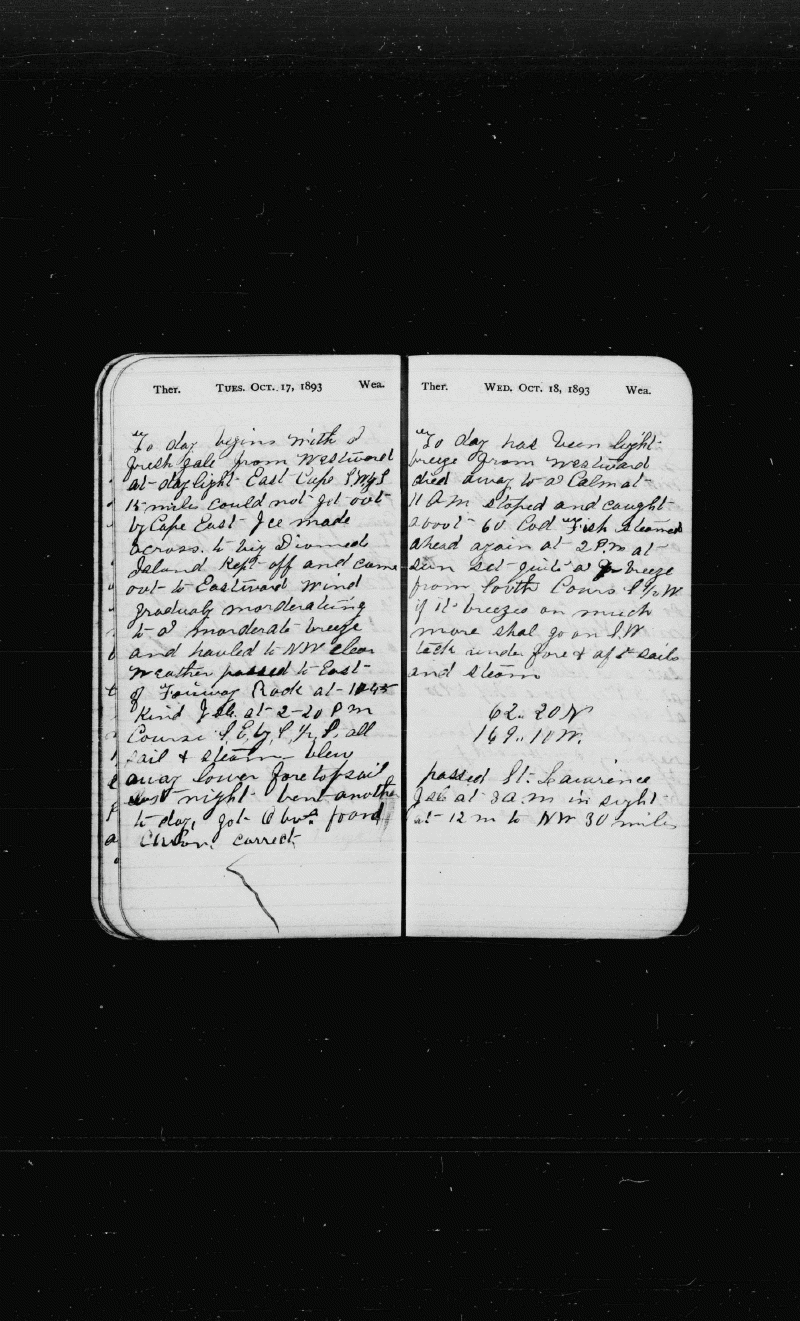 Ther. TUES. OCT. 17, 1893 Wea.
To day begins with a
fresh gale from Westward
at daylight East Cape
15 miles could not get out
by Cape East Ice made
across to big Diomed
Island Kept off and came
out to Eastward Wind
gradualy morderating
to a morderate breeze
and hauled to NW clear
Weather passed to East
of Fairway Rock at 10-45
Kind Isle at 2-20 P m
Course all
sail & steam blew
away lower fore topsail
last night bent another
to day, got found
correct
Ther. WED. OCT. 18, 1893 Wea.
To day has been light
breeze from Westward
died away to a Calm at
11 A M stoped and caught
about 60 Cod Fish steamed
ahead again at 2 P.m at
sun set quite a breeze
from South Cours S 1/2 W
if it breezes on much
more shal go on S W
tack under fore & aft sails
and steam
62.. 20 N
169.. 10 W.
passed St. Lawrence
Isle at 3 a.m in sight
at 12 m to NW 30 miles